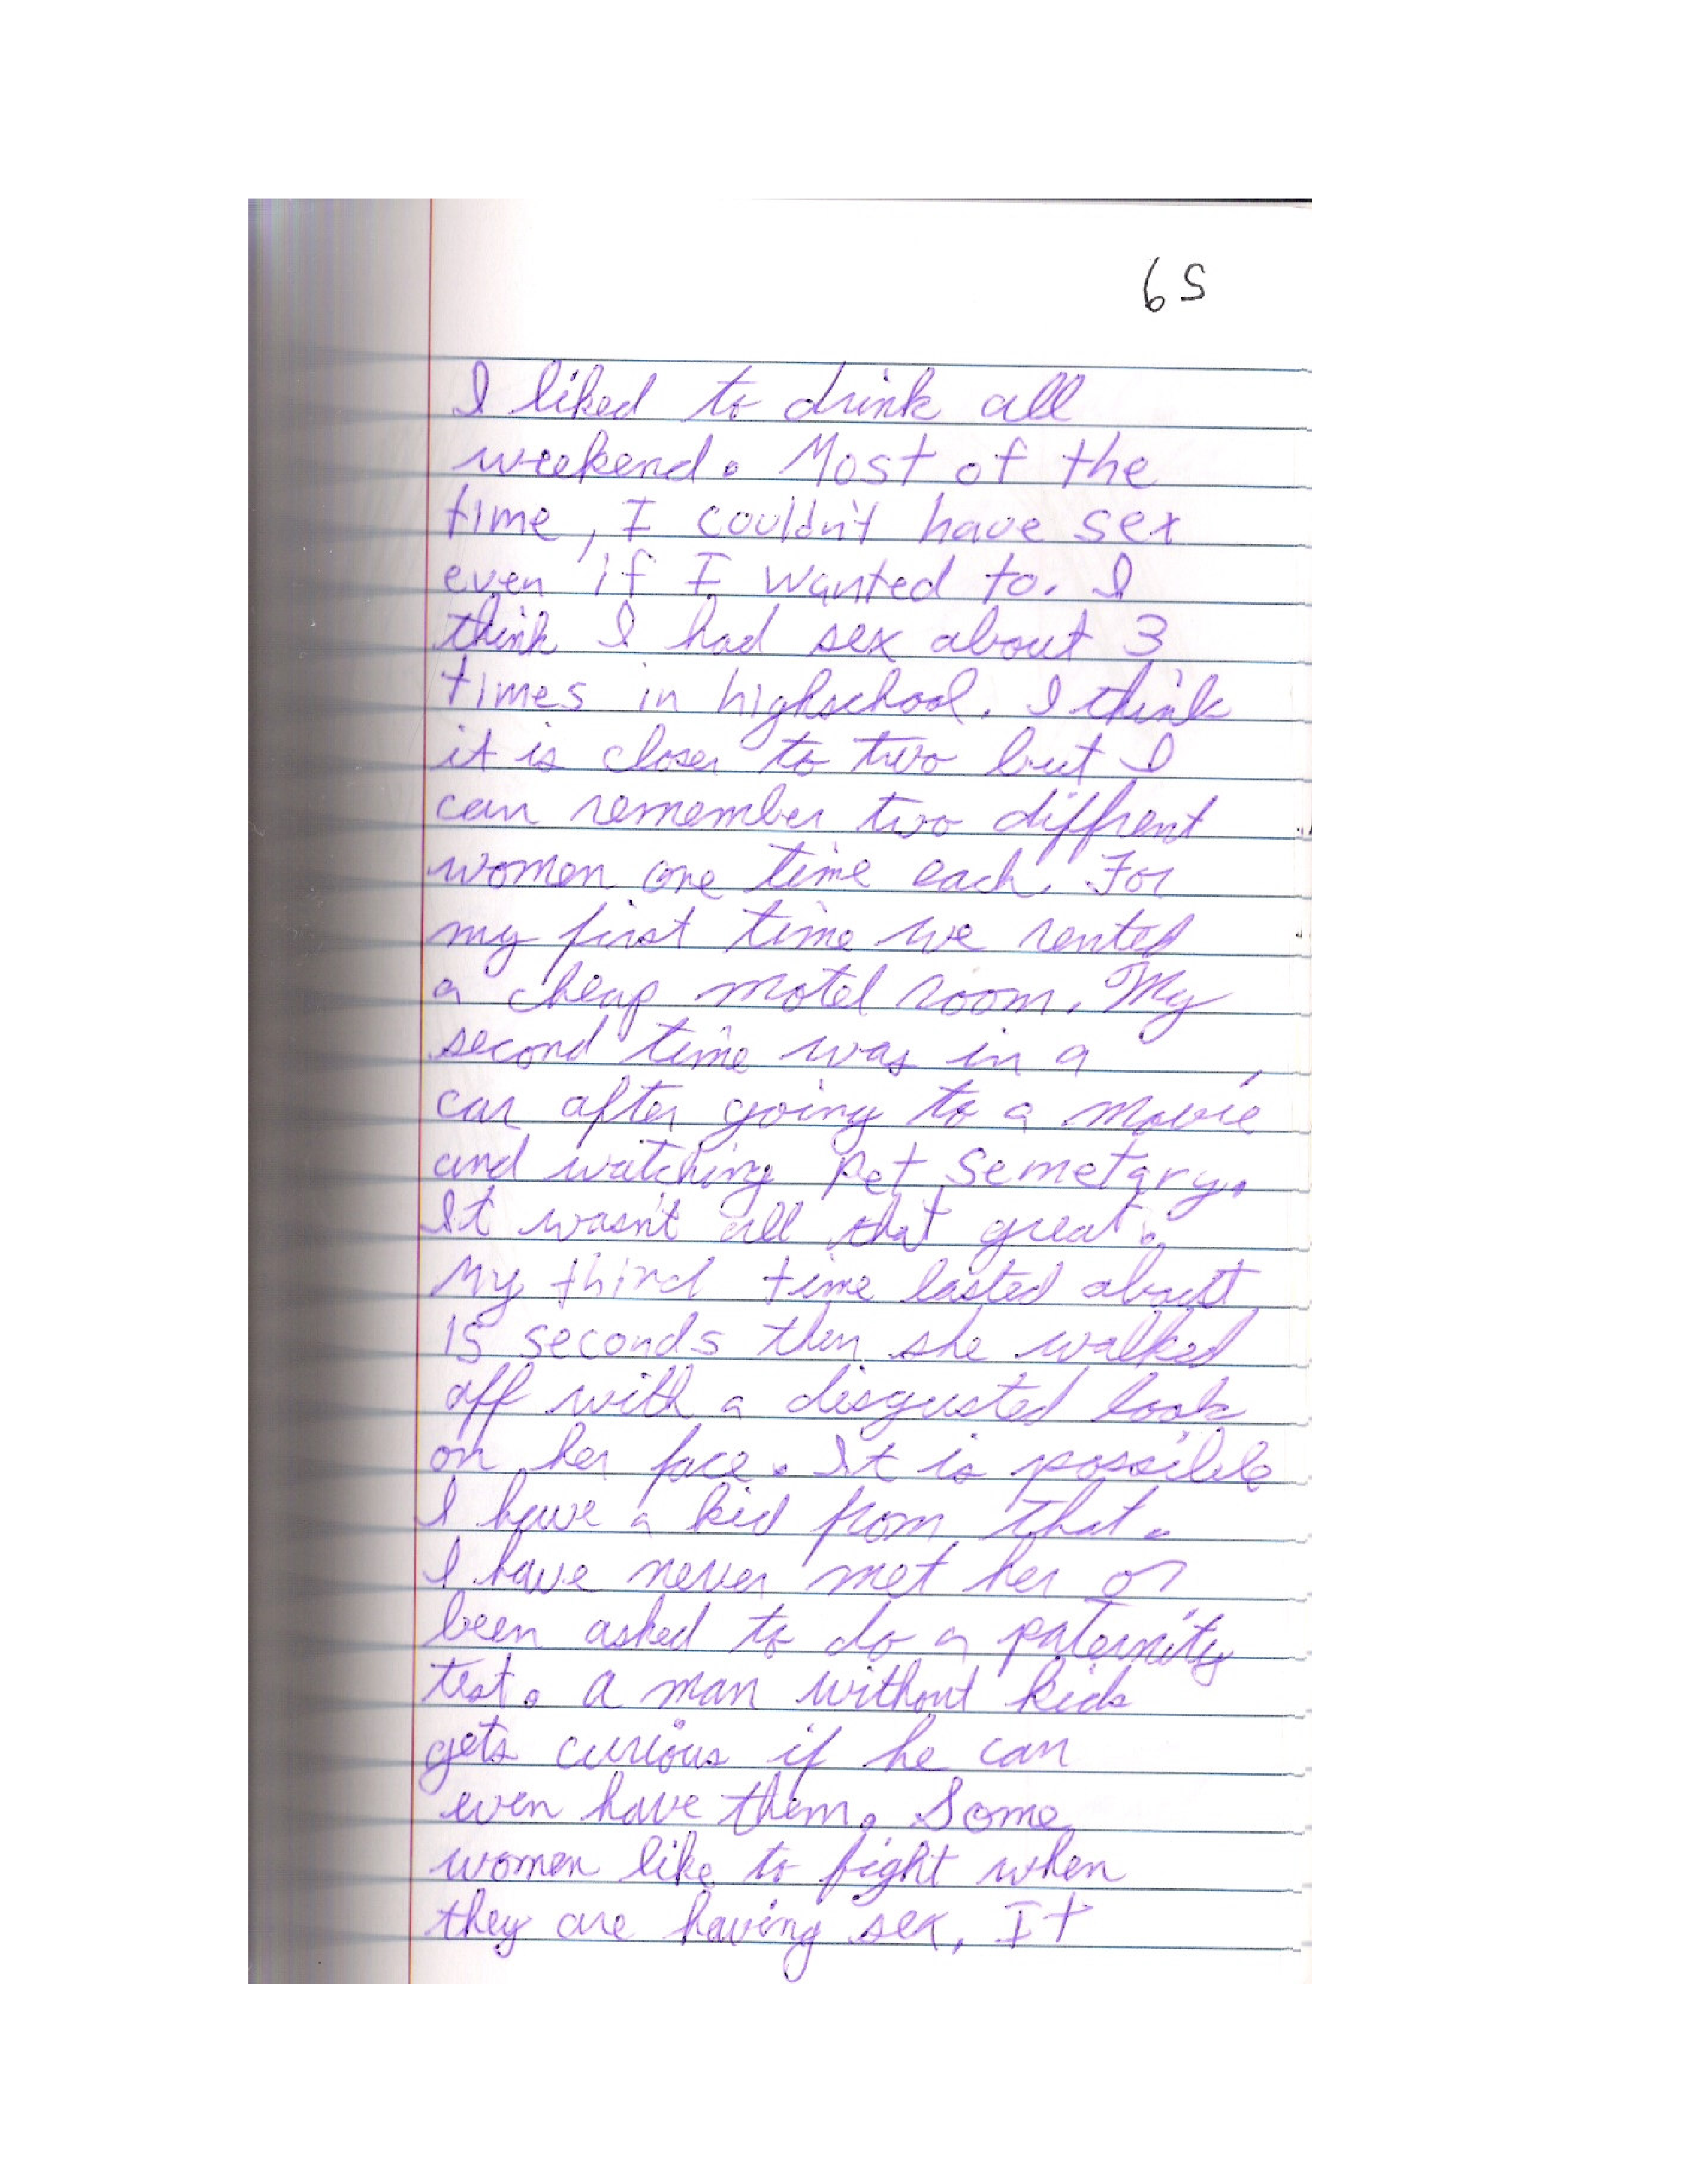 65
I liked to drink all
weekend. Most of the
time, I couldn't have sex
even if I wanted to. I
think I had sex about 3
times in highschool. I think
it is closer to two but I
can remember two diffrent
women one time each. For
my first time we rented
a cheap motel room. My
second time was in a
car after going to a movie
and watching Pet Semetary.
It wasn't all that great.
My third time lasted about
15 seconds then she walked
off with a disgusted look
on her face. It is possible
I have a kid from that.
I have never met her or
been asked to do a paternity
test. A man without kids
gets curious if he can
even have them. Some
women like to fight when
they are having sex. It